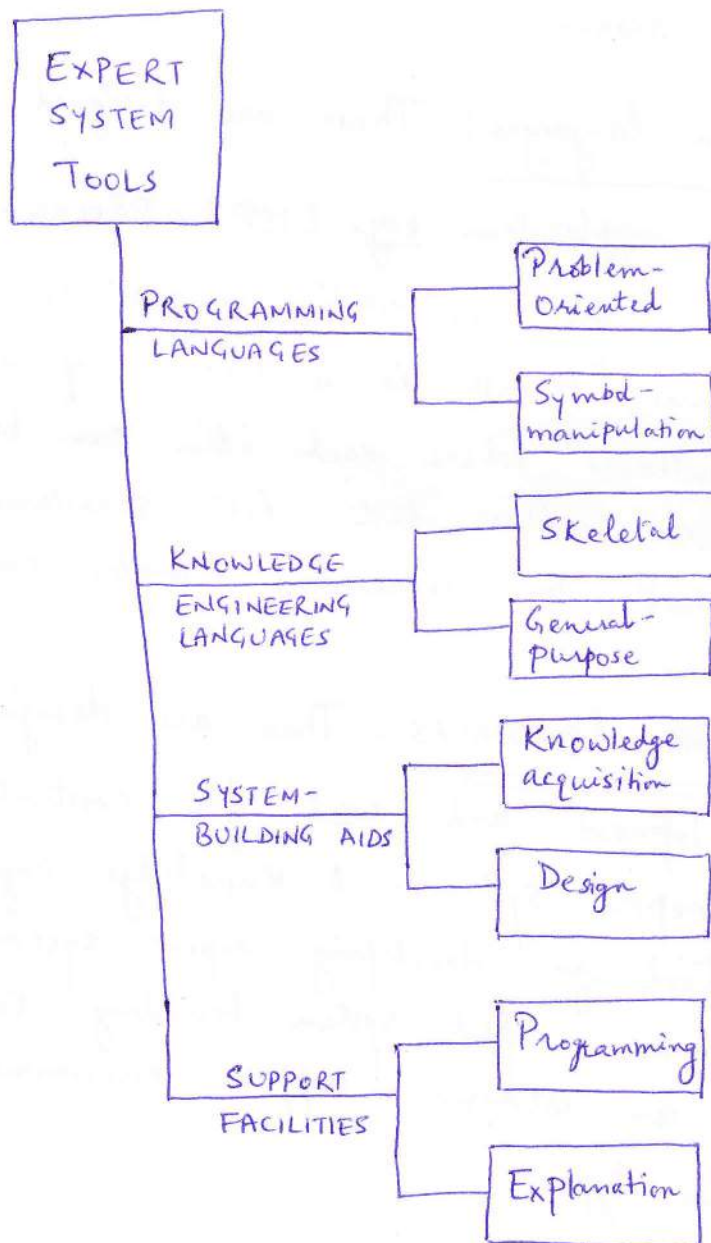 EXPERT
SYSTEM
TOOLS
PROGRAMMING
LANGUAGES
Problem-
Oriented
Symbol-
manipulation
KNOWLEDGE
ENGINEERING
LANGUAGES
Skeletal
General-
purpose
SYSTEM-
BUILDING AIDS
Knowledge
acquisition
Design
SUPPORT
FACILITIES
Programming
Explanation